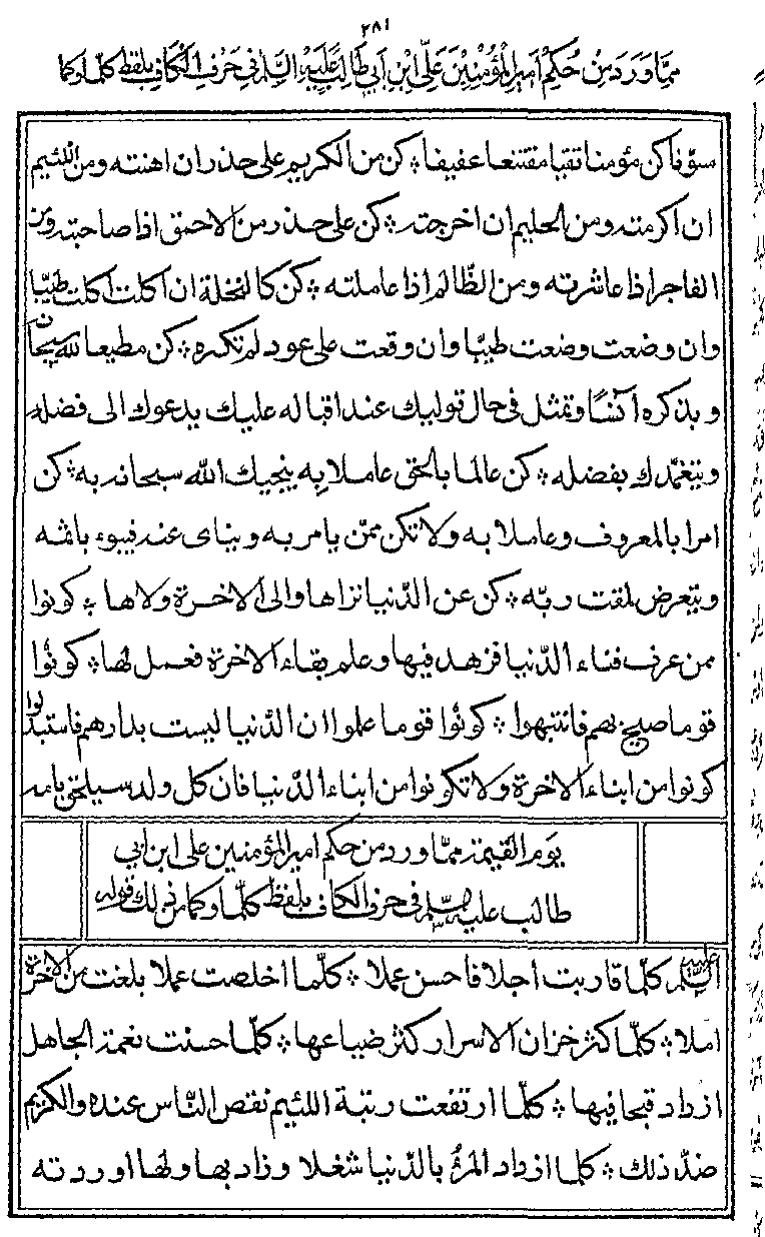 ٢٨١
مما ورد من حكم امير المؤمنين علي ابن ابي طالب عليه السلام في حرف الكاف بلفظ كلما وكما
سوّفا كن مؤمنا تقيا مقتنعا عفيفا ؛ كن من الكريم على حذر ان اهنته ومن اللئيم
ان اكرمته ومن الحليم ان احرجته ؛ كن على حذر من الاحمق اذا صاحبته ومن
الفاجر اذا عاشرته ومن الظّالم اذا عاملته ؛ كن كالنخلة ان اكلت اكلت طيّبا
وان وضعت وضعت طيبّا وان وقعت على عود لم تكسره ؛ كن مطيعا لله سبحانه
و بذكره آنسًا وتمثل في حال توليك عند اقباله عليك يدعوك الى فضله
ويتغمّدك بفضله ؛ كن عالما بالحق عاملا به ينجيك الله سبحانه به ؛ كن
امرا بالمعروف وعاملا به ولا تكن ممّن يامر به وينأى عنه فيبوء باثمه
ويتعرض لمقت ربّه ؛ كن عن الدّنيا نزاها والى الاخرة ولاها ؛ كونوا
ممن عرف فناء الدّنيا فزهد فيها وعلم بقاء الاخرة فعمل لها ؛ كونوا
قوما صيح بهم فانتبهوا ؛ كونوا قوما علموا ان الدّنيا ليست بدارهم فاستبدلوا
كونوا من ابناء الاخرة ولا تكونوا من ابناء الدّنيا فان كل ولد سيلحق بامه
يوم القيمة مما ورد من حكم امير المؤمنين علي ابن ابي
طالب عليه السلام في حرف الكاف بلفظ كلّما وكما من ذلك قوله
عليه السلام كلّما قاربت اجلا فاحسن عملا ؛ كلّما اخلصت عملا بلغت من الاخرة
املا ؛ كلّما كثر خزان الاسرار كثر ضياعها ؛ كلّما حسنت نعمة الجاهل
ازداد قبحا فيها ؛ كلّما ارتفعت رتبة اللئيم نقص النّاس عنده والكريم
ضدّ ذلك ؛ كلما ازداد المرؤ بالدّنيا شغلا وزاد بها ولها اوردته